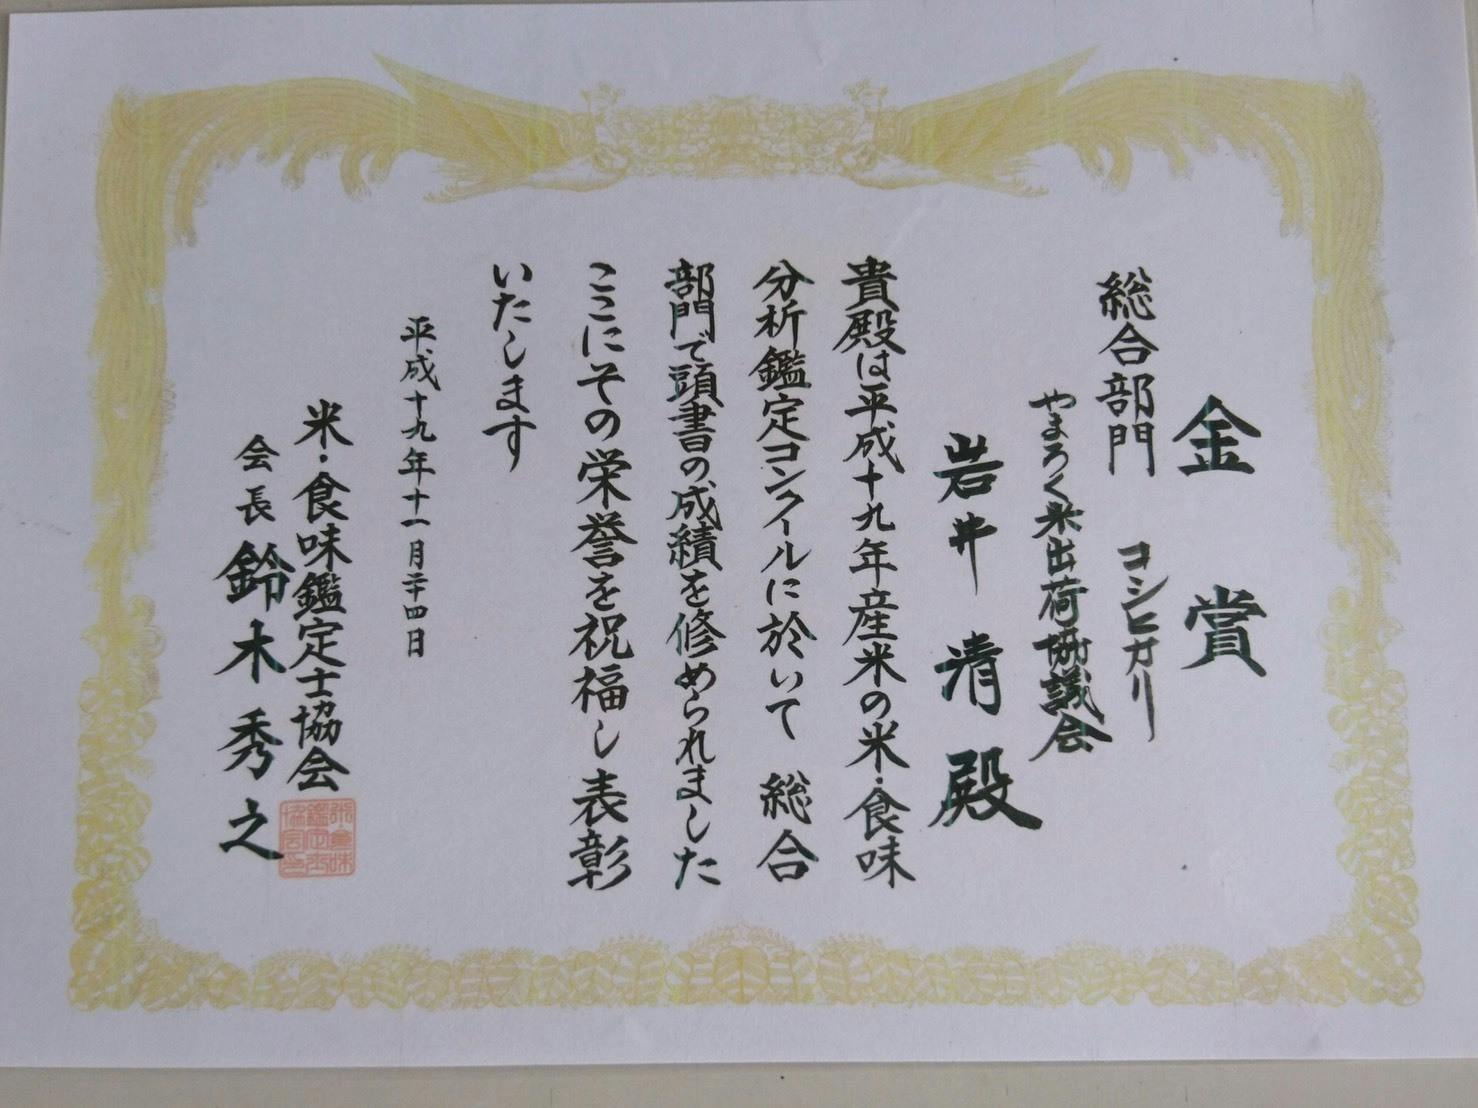 金賞
総合部門 コシヒカリ
やまろく米出荷協議会
岩井清殿
貴殿は平成十九年産米の米・食味
分析鑑定コンクールに於いて 総合
部門で頭書の成績を修められました
ここにその栄誉を祝福し表彰
いたします
平成十九年十一月二十四日
米・食味鑑定士協会
会長 鈴木秀之
米食味
鑑定士
協会印